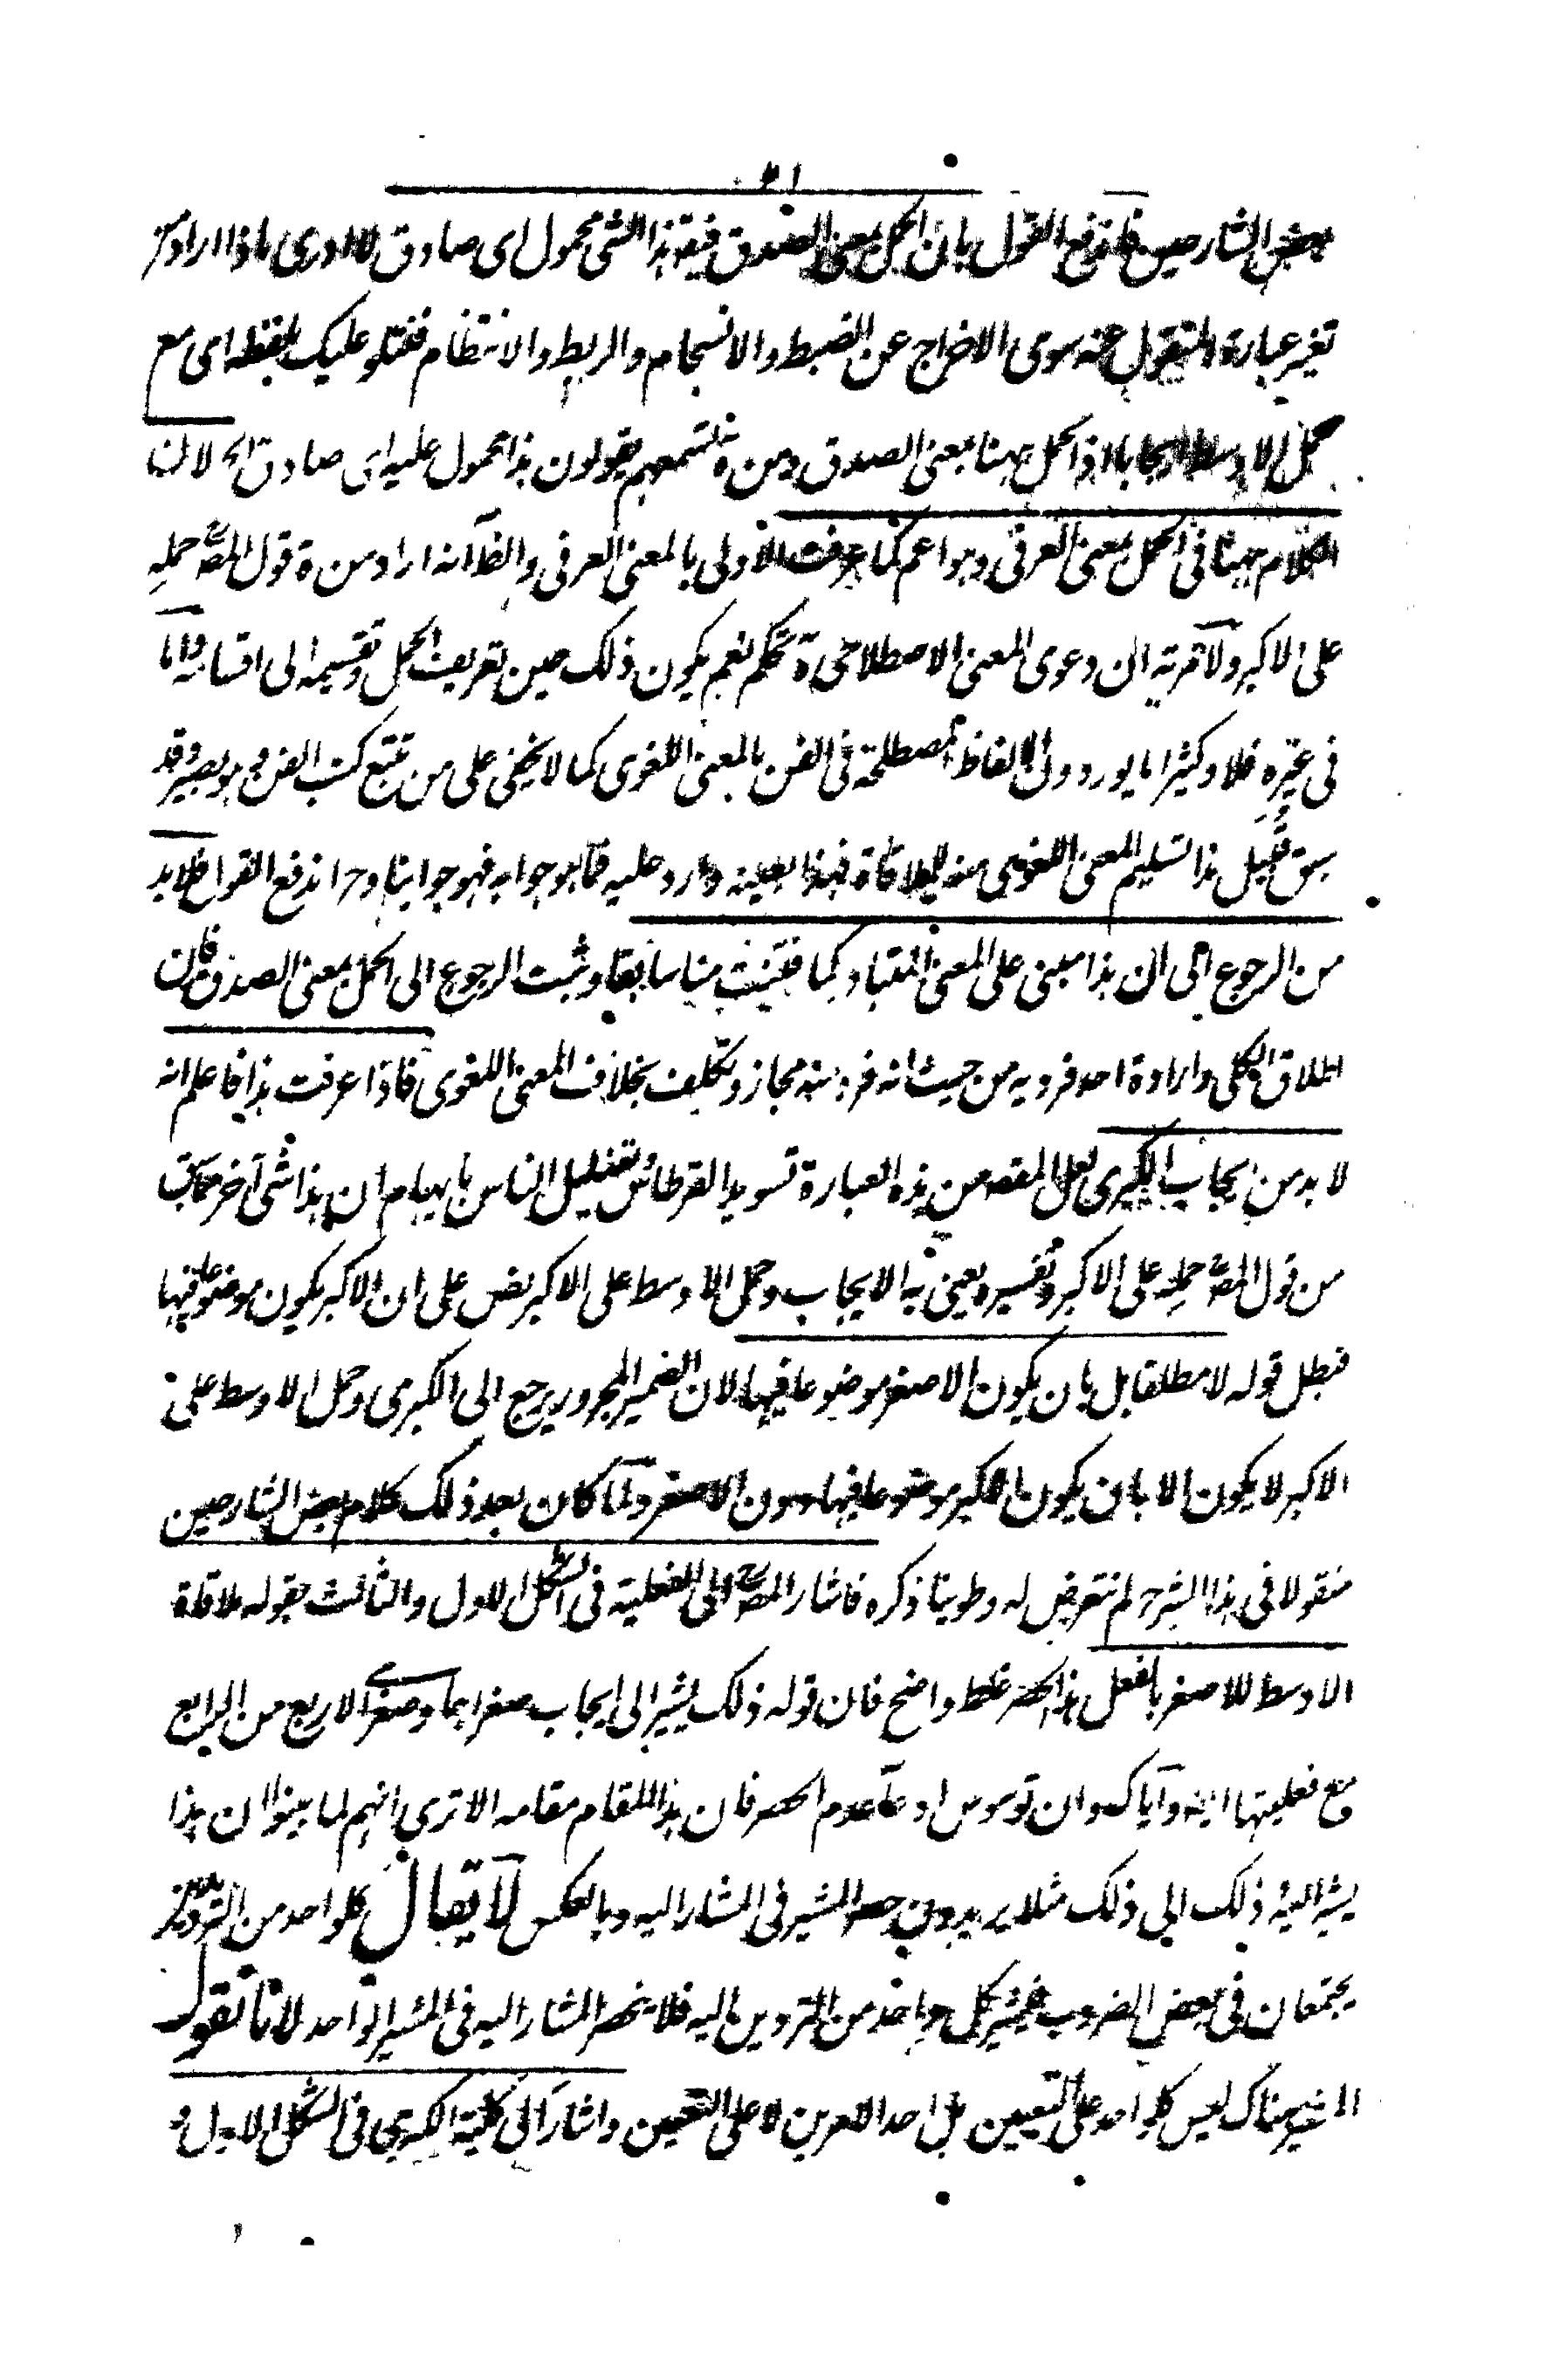 بعض الشارحين فاندفع القول بان الحمل بمعنى الصدق فيقه هذا الشى محمول اى صادق لا ادرى ماذا اراد من
تغير عبارة المنقول عنه سوى الاخراج عن الضبط والانسجام والربط والانتظام فنتلو عليك بلفظه اى مع
حمل الاوسط ايجابا اذ الحمل ههنا بمعنى الصدق ومن ثمة تسمعهم يقولون هذا محمول عليه اى صادق الخ لان
الكلام ههنا فى الحمل بمعنى العرفى وهو اعم كما عرفت الاولى بالمعنى العرفى والظ انه اراد من ة قول المصه حمله
على الاكبر ولا قرينة ان دعوى المعنى الاصطلاحى ة تحكم نعم يكون ذلك حين تعريف الحمل وتقسيمه الى اقسامه واما
فى غيره فلا وكثيرا ما يوردون الالفاظ المصطلحة فى الفن بالمعنى اللغوى كما لا يخفى على من تتبع كتب الفن وهو بصير وقد
سبق قبيل هذا تسليم المعنى اللغوى منه للملاقاة فهذا بعينه وارد عليه فما هو جوابه فهو جوابنا وح اندفع القول فلا بد
من الرجوع الى ان هذا مبنى على المعنى المتبادر كما فتيننت منا سابقا وثبت الرجوع الى الحمل بمعنى الصدق فان
اطلاق الكلى وارادة احد فرديه من حيث انه فرد منه مجاز وتكلف بخلاف المعنى اللغوى فاذا عرفت هذا فاعلم انه
لا بد من ايجاب الكبرى لعل المقصه من هذه العبارة تسويد القرطاس وتضليل الناس بايهام ان هذا شى آخر مما سبق
من قول المصه حمله على الاكبر وتفسيره يعنى به الايجاب وحمل الاوسط على الاكبر نص على ان الاكبر يكون موضوعا فيها
فبطل قوله لا مطلقا بل بان يكون الاصغر موضوعا فيها لان الضمير المجرور يرجع الى الكبرى وحمل الاوسط على
الاكبر لا يكون الا بان يكون الاكبر موضوعا فيها دون الاصغر ولما كان بعد ذلك كلام بعض الشارحين
منقولا فى هذا الشرح لم نتعرض له وطوينا ذكره فاشار المصه الى الفعلية فى الشكل الاول والثالث بقوله ملاقاة
الاوسط للاصغر بالفعل هذا الحصر غلط واضح فان قوله ذلك يشير الى ايجاب صغراهما وصغرى الاربع من الرابع
مع فعليتها ايضا واياك وان توسوس ادعاء عدم الحصر فان هذا المقام مقامه الا ترى انهم لما بينوا ان هذا
يشير اليه ذلك الى ذلك مثلا يريدون حصر المشير فى المشار اليه وبالعكس لا يقال كلو احد من الترديدين
يجتمعان فى بعض الضروب فيشير كل واحد من الترديدين اليه فلا ينحصر المشار اليه فى المشير الواحد لانا نقول
المشير هناك ليس كلو احد على التعيين بل احد الامرين لا على التعيين واشار الى كلية الكبرى فى الشكل الاول و